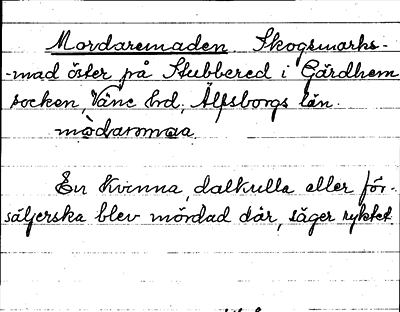 Mordaremaden. Skogsmarks-
-mad öster på Stubbered i Gärdhem
socken, Väne hd, Älfsborgs län.
mòdarəmaa
En kvinna, dalkulla eller för-
säljerska blev mördad där, säger ryktet